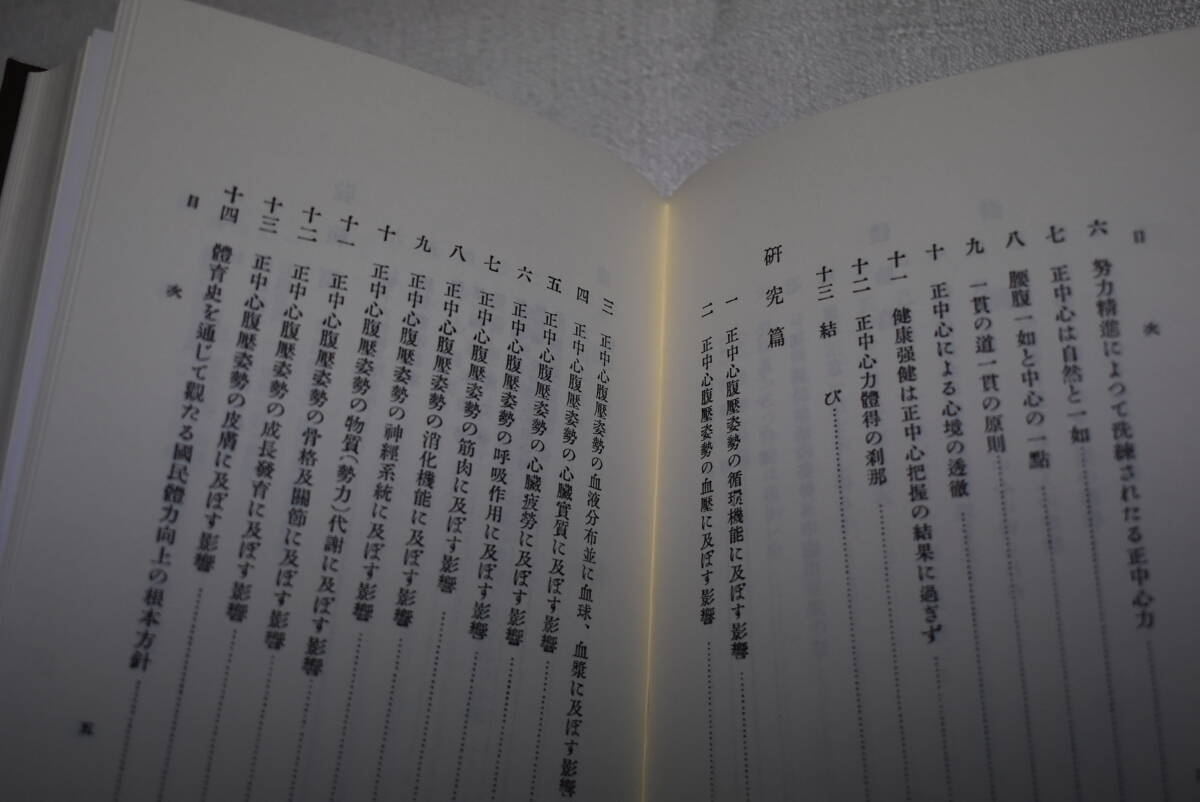 目次
六 努力精進によつて洗練されたる正中心力
七 正中心は自然と一如
八 腰腹一如と中心の一點
九 一貫の道一貫の原則
十 正中心による心境の透徹
十一 健康强健は正中心把握の結果に過ぎず
十二 正中心力體得の刹那
十三 結び
硏究篇
一 正中心腹壓姿勢の循環機能に及ぼす影響
二 正中心腹壓姿勢の血壓に及ぼす影響
三 正中心腹壓姿勢の血液分布並に血球、血漿に及ぼす影響
四 正中心腹壓姿勢の心臟實質に及ぼす影響
五 正中心腹壓姿勢の心臟疲勞に及ぼす影響
六 正中心腹壓姿勢の呼吸作用に及ぼす影響
七 正中心腹壓姿勢の筋肉に及ぼす影響
八 正中心腹壓姿勢の消化機能に及ぼす影響
九 正中心腹壓姿勢の神經系統に及ぼす影響
十 正中心腹壓姿勢の物質(勢力)代謝に及ぼす影響
十一 正中心腹壓姿勢の骨格及關節に及ぼす影響
十二 正中心腹壓姿勢の成長發育に及ぼす影響
十三 正中心腹壓姿勢の皮膚に及ぼす影響
十四 體育史を通じて觀たる國民體力向上の根本方針
目次
五